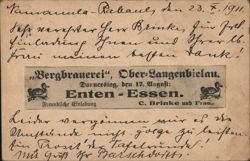 Namanula-Rabaul, den 23. X. 1911.
Sehr verehrter Herr Brinke, Zur
Einladung Ihnen und Ihrer lb.
Frau meinen besten Dank!
„Bergbrauerei“, Ober-Langenbielau.
Donnerstag, den 17. August:
Enten - Essen.
Freundliche Einladung
C. Brinke und Frau.
Leider vergönnen mir es die
Umstände nicht Folge zu leisten
Ein Prosit der Tafelrunde!
Mit Gruß Ihr